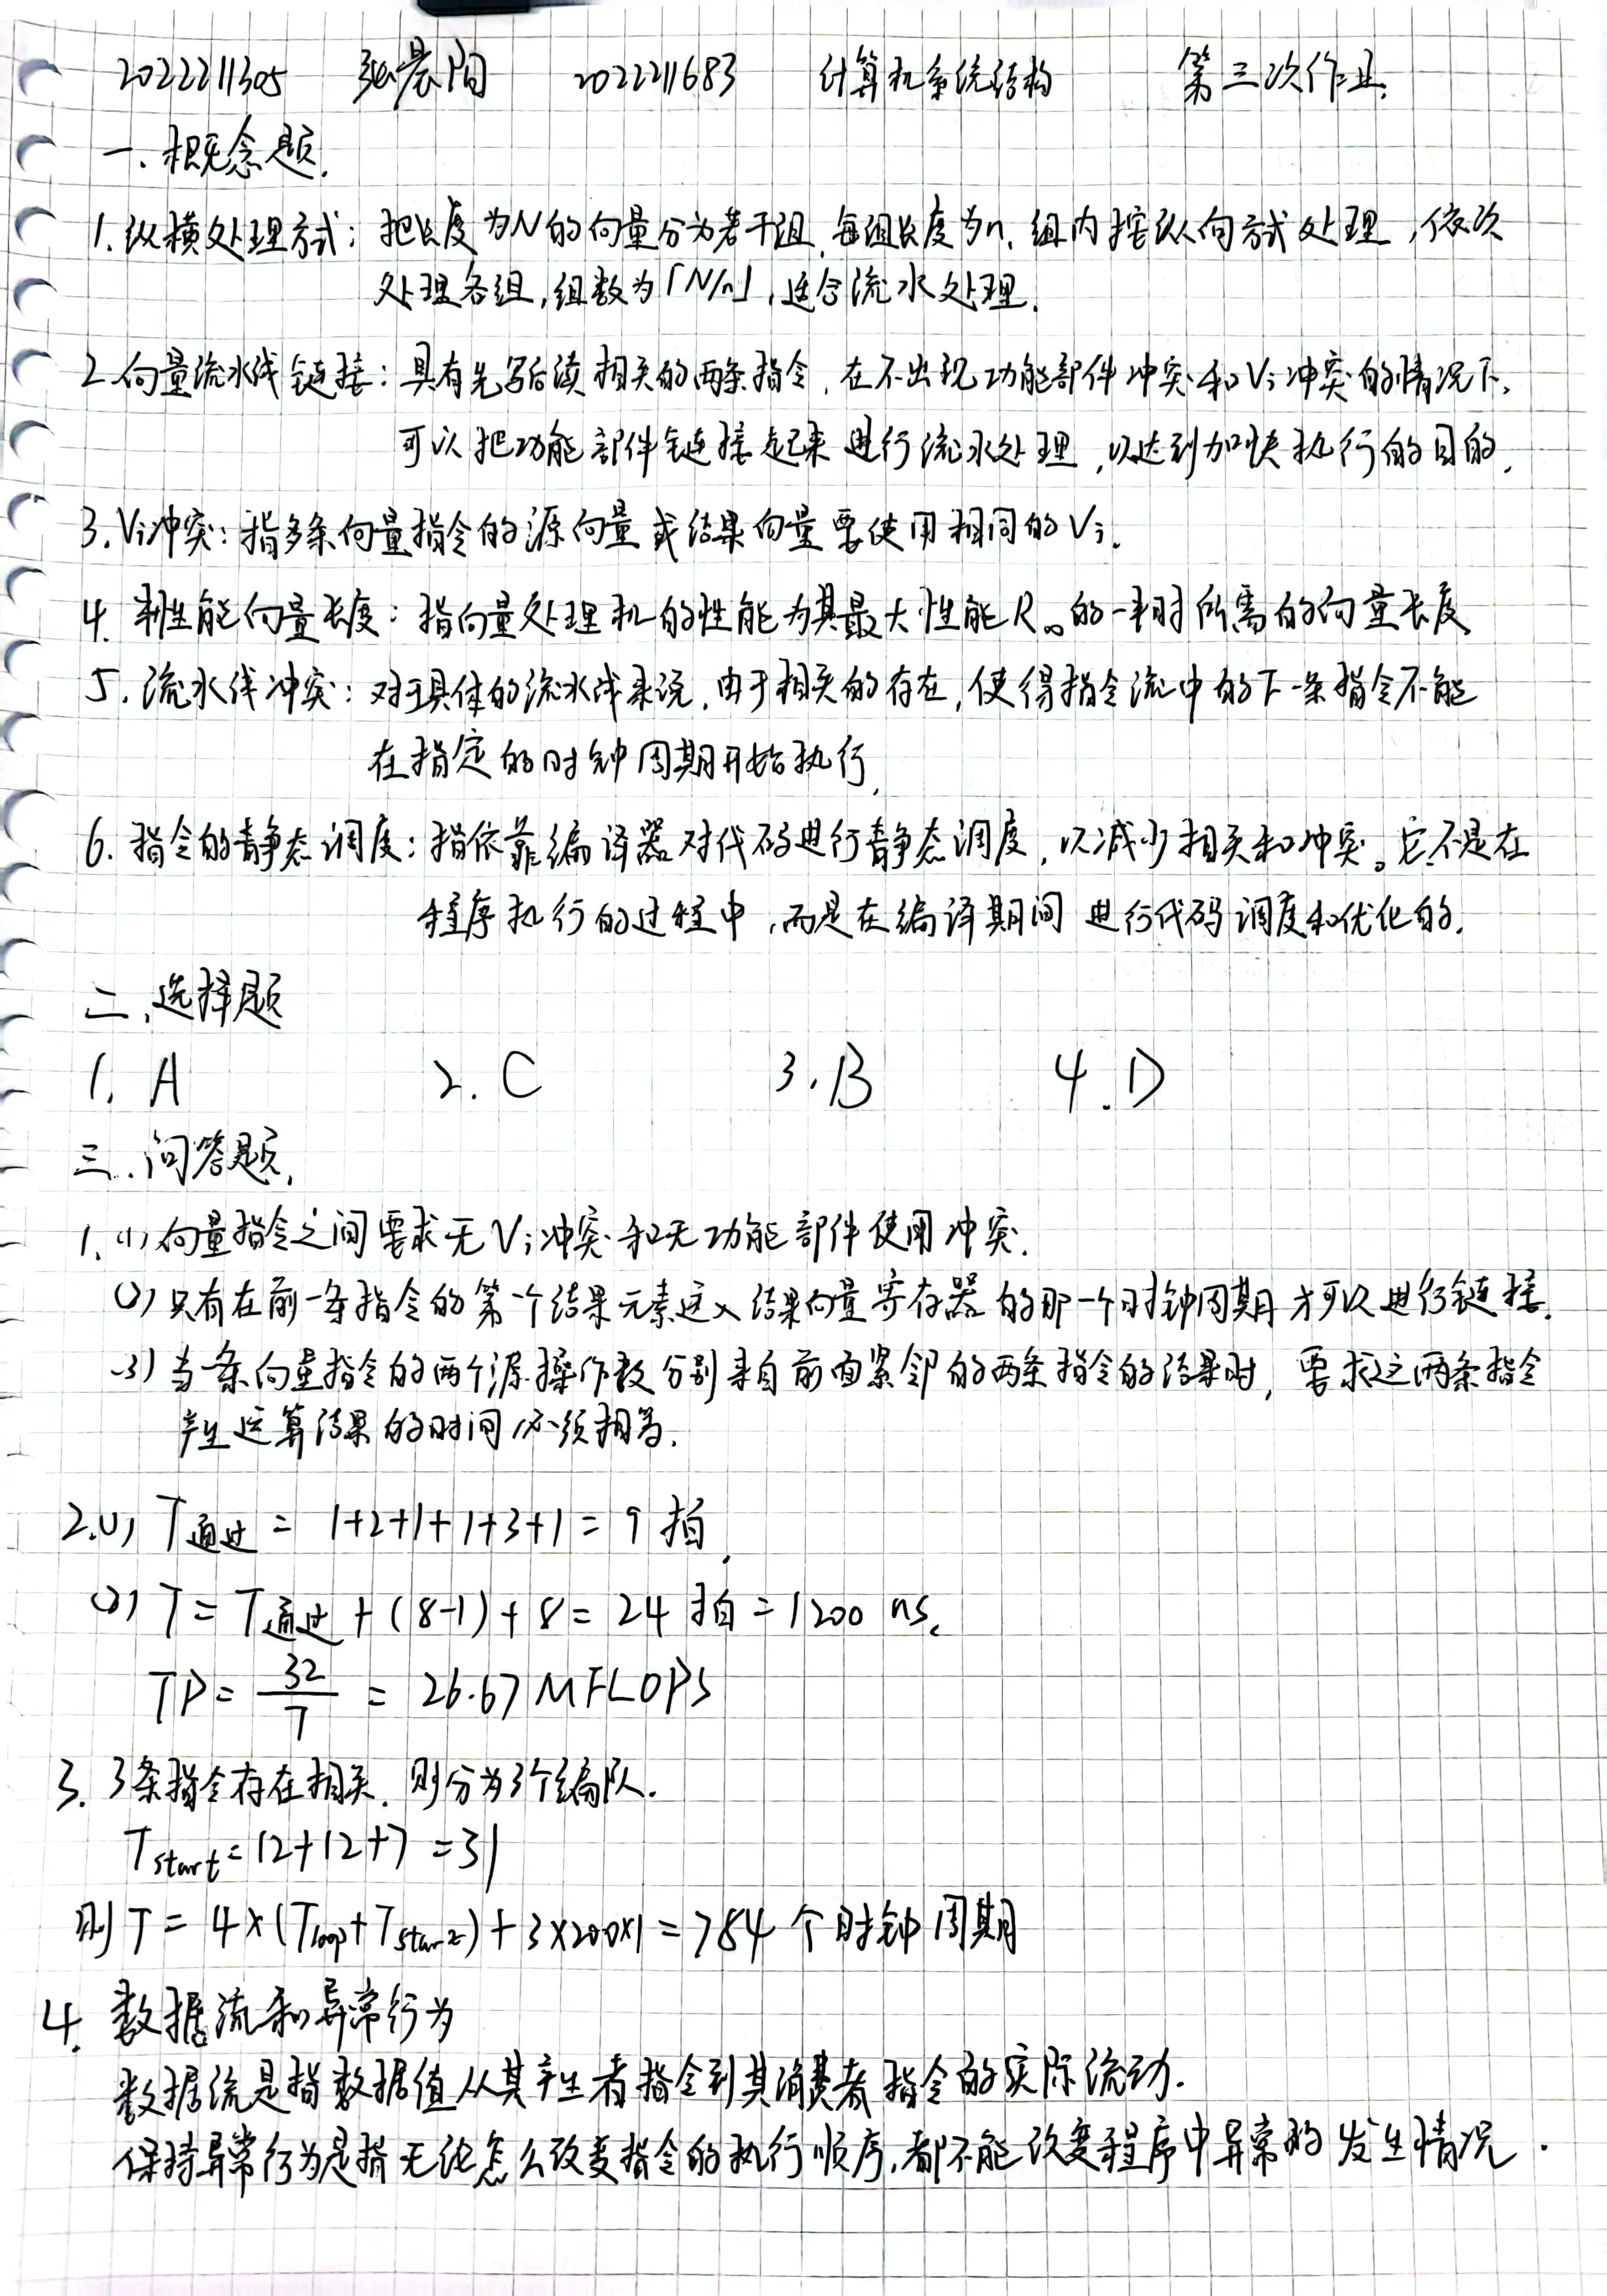 2022211305 张晨阳 2022211683 计算机系统结构 第三次作业.
一. 概念题.
1. 纵横处理方式: 把长度为N的向量分为若干组, 每组长度为n, 组内按纵向方式处理, 依次
处理各组, 组数为「N/n」, 适合流水处理.
2. 向量流水线链接: 具有先写后读相关的两条指令, 在不出现功能部件冲突和Vi冲突的情况下,
可以把功能部件链接起来进行流水处理, 以达到加快执行的目的.
3. Vi冲突: 指多条向量指令的源向量或结果向量要使用相同的Vi.
4. 半性能向量长度: 指向量处理机的性能为其最大性能R∞的一半时所需的向量长度
5. 流水线冲突: 对于具体的流水线来说, 由于相关的存在, 使得指令流中的下一条指令不能
在指定的时钟周期开始执行.
6. 指令的静态调度: 指依靠编译器对代码进行静态调度, 以减少相关和冲突。它不是在
程序执行的过程中, 而是在编译期间进行代码调度和优化的.
二. 选择题
1. A 2. C 3. B 4. D
三. 问答题.
1. (1) 向量指令之间要求无Vi冲突和无功能部件使用冲突.
(2) 只有在前一条指令的第一个结果元素送入结果向量寄存器的那一个时钟周期才可以进行链接.
(3) 当一条向量指令的两个源操作数分别来自前面紧邻的两条指令的结果时, 要求这两条指令
产生运算结果的时间必须相等.
2. (1) T通过 = 1+2+1+1+3+1 = 9 拍.
(2) T = T通过 + (8-1) + 8 = 24 拍 = 1200 ns.
TP = 32/T = 26.67 MFLOPS
3. 3条指令存在相关, 则分为3个编队.
Tstart = 12+12+7 = 31
则 T = 4×(Tloop+Tstart) + 3×200×1 = 784 个时钟周期
4. 数据流和异常行为
数据流是指数据值从其产生者指令到其消费者指令的实际流动.
保持异常行为是指无论怎么改变指令的执行顺序, 都不能改变程序中异常的发生情况.